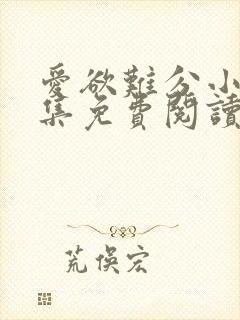 愛欲難分小
集免費閱讀
荒俁宏